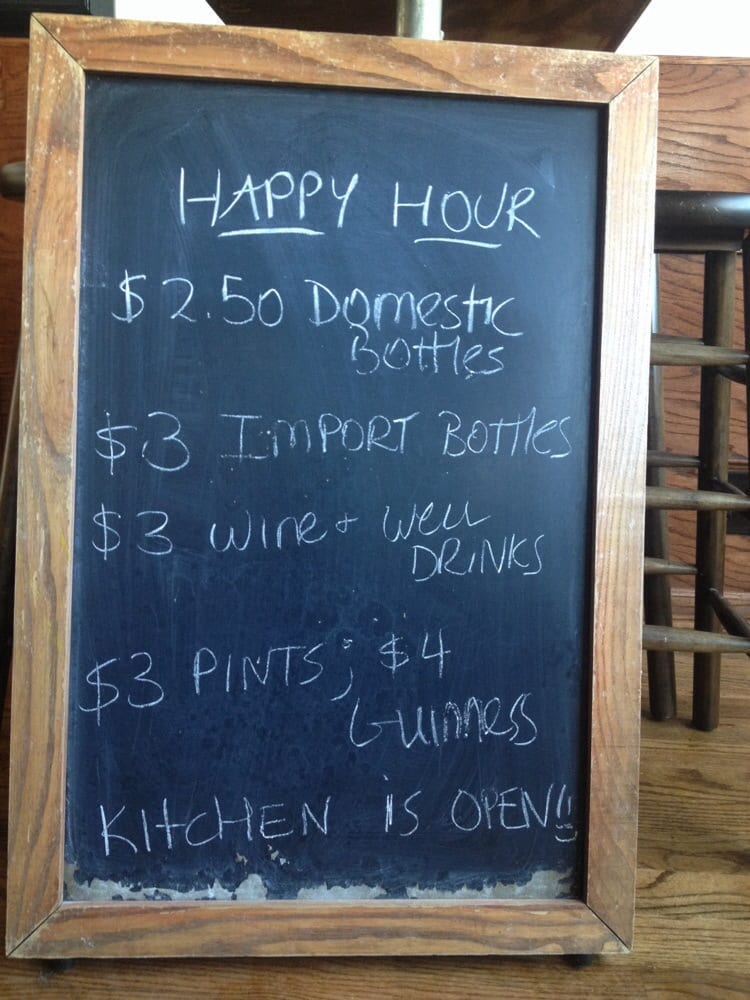 HAPPY HOUR
$2.50 Domestic
Bottles
$3 IMPORT BOTTles
$3 wine + well
DRINKS
$3 PINTS; $4
Guinness
KITCHEN is OPEN!!